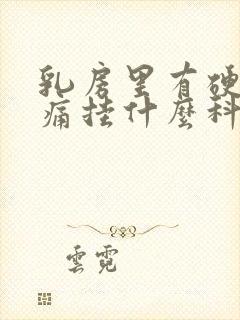 乳房里有硬
痛挂什麼科
雲霓